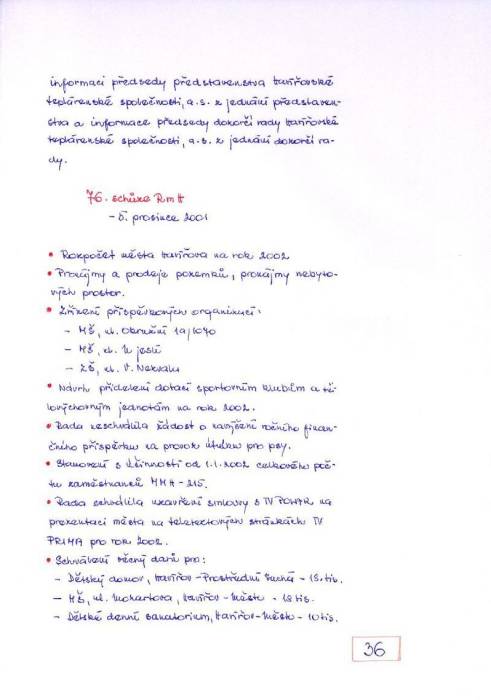 informací předsedy představenstva havířovské
teplárenské společnosti, a.s. z jednání představen-
stva a informace předsedy dozorčí rady havířovské
teplárenské společnosti, a.s. z jednání dozorčí ra-
dy.
76. schůze RmH
- 5. prosince 2001
• Rozpočet města Havířova na rok 2002
• Pronájmy a prodeje pozemků, pronájmy nebyto-
vých prostor.
• Zřízení příspěvkových organizací:
- MŠ, ul. Okružní 1a/1070
- MŠ, ul. U jeslí
- ZŠ, ul. V. Nezvala
• Návrh přidělení dotací sportovním klubům a tě-
lovýchovným jednotám na rok 2002.
• Rada neschválila žádost o navýšení ročního finan-
čního příspěvku na provoz útulku pro psy.
• Stanovení s účinností od 1.1.2002 celkového poč-
tu zaměstnanců MMH - 215.
• Rada schválila uzavření smlouvy s TV POHAR na
prezentaci města na teletextových stránkách TV
PRIMA pro rok 2002.
• Schválení věcný darů pro:
- Dětský domov, Havířov - Prostřední Suchá - 15 tis.
- MŠ, ul. Mozartova, Havířov - Město - 12 tis.
- Dětské denní sanatorium, Havířov - Město - 10 tis.
36